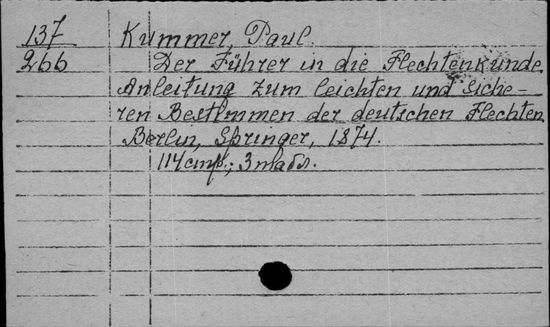 137 Kummer, Paul.
266 Der Führer in die Flechtenkunde.
Anleitung zum leichten und siche-
ren Bestimmen der deutschen Flechten.
Berlin, Springer, 1874.
114 стр.; 3 табл.